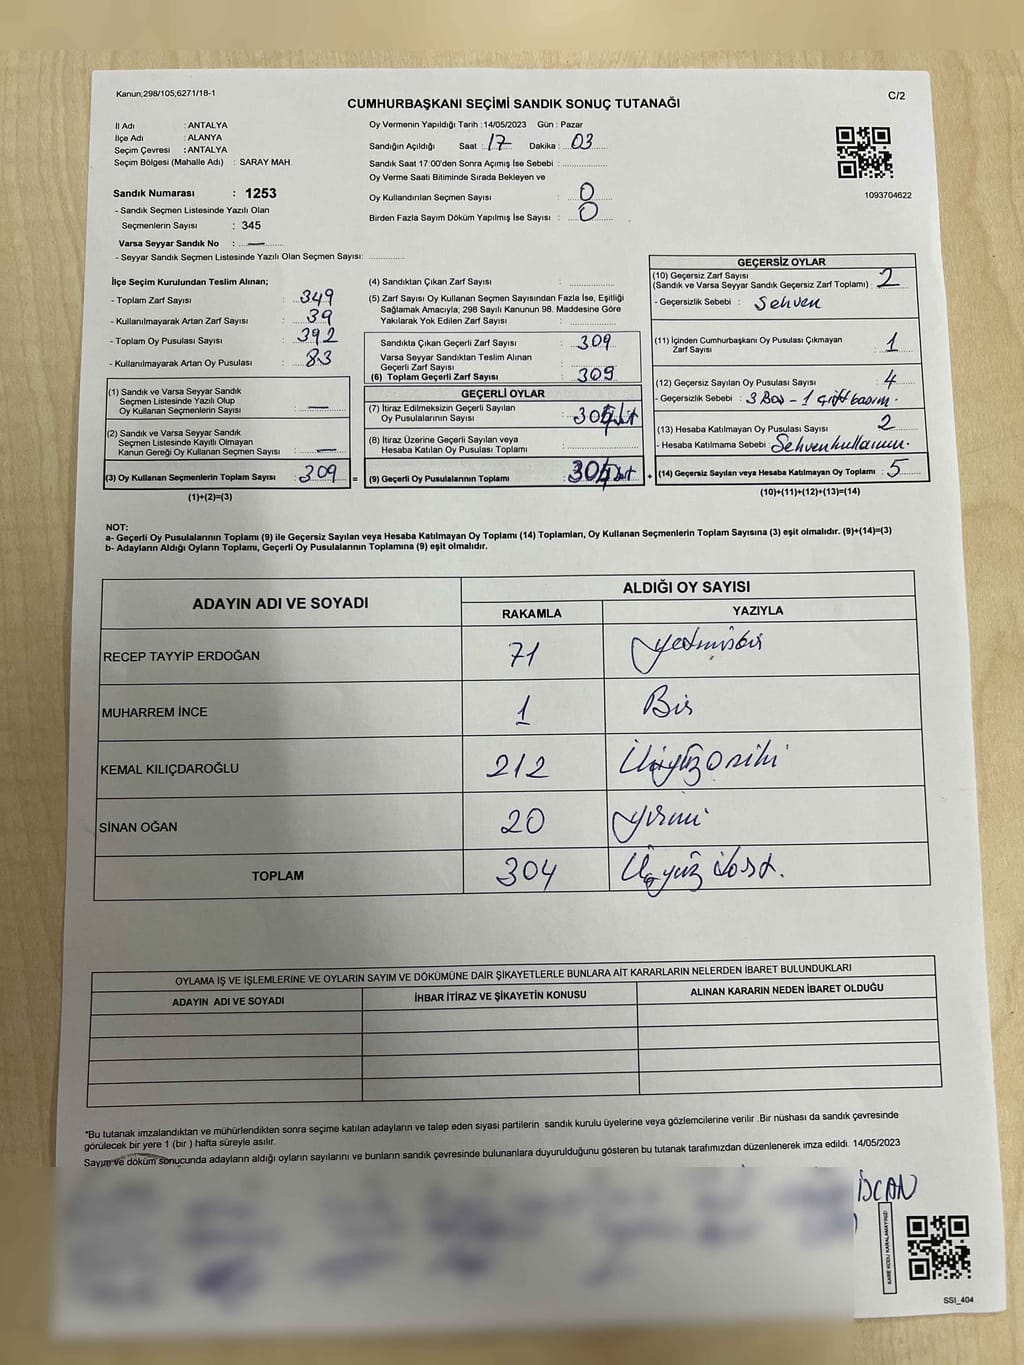 Kanun;298/105;6271/18-1
C/2
CUMHURBAŞKANI SEÇİMİ SANDIK SONUÇ TUTANAĞI
İl Adı : ANTALYA
İlçe Adı : ALANYA
Seçim Çevresi : ANTALYA
Seçim Bölgesi (Mahalle Adı) : SARAY MAH.
Sandık Numarası : 1253
- Sandık Seçmen Listesinde Yazılı Olan
Seçmenlerin Sayısı : 345
Varsa Seyyar Sandık No : —
- Seyyar Sandık Seçmen Listesinde Yazılı Olan Seçmen Sayısı:
Oy Vermenin Yapıldığı Tarih :14/05/2023 Gün : Pazar
Sandığın Açıldığı Saat : 17 Dakika : 03
Sandık Saat 17:00'den Sonra Açımış İse Sebebi :
Oy Verme Saati Bitiminde Sırada Bekleyen ve
Oy Kullandırılan Seçmen Sayısı : 0
Birden Fazla Sayım Döküm Yapılmış İse Sayısı : 0
1093704622
İlçe Seçim Kurulundan Teslim Alınan;
- Toplam Zarf Sayısı : 349
- Kullanılmayarak Artan Zarf Sayısı : 39
- Toplam Oy Pusulası Sayısı : 392
- Kullanılmayarak Artan Oy Pusulası : 83
(1) Sandık ve Varsa Seyyar Sandık
Seçmen Listesinde Yazılı Olup
Oy Kullanan Seçmenlerin Sayısı : —
(2) Sandık ve Varsa Seyyar Sandık
Seçmen Listesinde Kayıtlı Olmayan
Kanun Gereği Oy Kullanan Seçmen Sayısı : —
(3) Oy Kullanan Seçmenlerin Toplam Sayısı : 309
(1)+(2)=(3)
(4) Sandıktan Çıkan Zarf Sayısı :
(5) Zarf Sayısı Oy Kullanan Seçmen Sayısından Fazla İse, Eşitliği
Sağlamak Amacıyla; 298 Sayılı Kanunun 98. Maddesine Göre
Yakılarak Yok Edilen Zarf Sayısı :
Sandıkta Çıkan Geçerli Zarf Sayısı : 309
Varsa Seyyar Sandıktan Teslim Alınan
Geçerli Zarf Sayısı :
(6) Toplam Geçerli Zarf Sayısı : 309
GEÇERLİ OYLAR
(7) İtiraz Edilmeksizin Geçerli Sayılan
Oy Pusulalarının Sayısı :
(8) İtiraz Üzerine Geçerli Sayılan veya
Hesaba Katılan Oy Pusulası Toplamı :
= (9) Geçerli Oy Pusulalarının Toplamı :
GEÇERSİZ OYLAR
(10) Geçersiz Zarf Sayısı
(Sandık ve Varsa Seyyar Sandık Geçersiz Zarf Toplamı) : 2
- Geçersizlik Sebebi : Sehven
(11) İçinden Cumhurbaşkanı Oy Pusulası Çıkmayan
Zarf Sayısı : 1
(12) Geçersiz Sayılan Oy Pusulası Sayısı : 4
- Geçersizlik Sebebi : 3 Boş - 1 çift basım.
(13) Hesaba Katılmayan Oy Pusulası Sayısı : 2
- Hesaba Katılmama Sebebi : Sehven kullanım.
+ (14) Geçersiz Sayılan veya Hesaba Katılmayan Oy Toplamı : 5
(10)+(11)+(12)+(13)=(14)
NOT:
a- Geçerli Oy Pusulalarının Toplamı (9) ile Geçersiz Sayılan veya Hesaba Katılmayan Oy Toplamı (14) Toplamları, Oy Kullanan Seçmenlerin Toplam Sayısına (3) eşit olmalıdır. (9)+(14)=(3)
b- Adayların Aldığı Oyların Toplamı, Geçerli Oy Pusulalarının Toplamına (9) eşit olmalıdır.
ADAYIN ADI VE SOYADI ALDIĞI OY SAYISI
RAKAMLA YAZIYLA
RECEP TAYYİP ERDOĞAN 71 yetmişbir
MUHARREM İNCE 1 Bir
KEMAL KILIÇDAROĞLU 212 İkiyüzoniki
SİNAN OĞAN 20 yirmi
TOPLAM 304 Üçyüz dört.
OYLAMA İŞ VE İŞLEMLERİNE VE OYLARIN SAYIM VE DÖKÜMÜNE DAİR ŞİKAYETLERLE BUNLARA AİT KARARLARIN NELERDEN İBARET BULUNDUKLARI
ADAYIN ADI VE SOYADI İHBAR İTİRAZ VE ŞİKAYETİN KONUSU ALINAN KARARIN NEDEN İBARET OLDUĞU
*Bu tutanak imzalandıktan ve mühürlendikten sonra seçime katılan adayların ve talep eden siyasi partilerin sandık kurulu üyelerine veya gözlemcilerine verilir .Bir nüshası da sandık çevresinde
görülecek bir yere 1 (bir ) hafta süreyle asılır.
Sayım ve döküm sonucunda adayların aldığı oyların sayılarını ve bunların sandık çevresinde bulunanlara duyurulduğunu gösteren bu tutanak tarafımızdan düzenlenerek imza edildi. 14/05/2023
KARE KODU KARALAMAYINIZ!
SSI_404